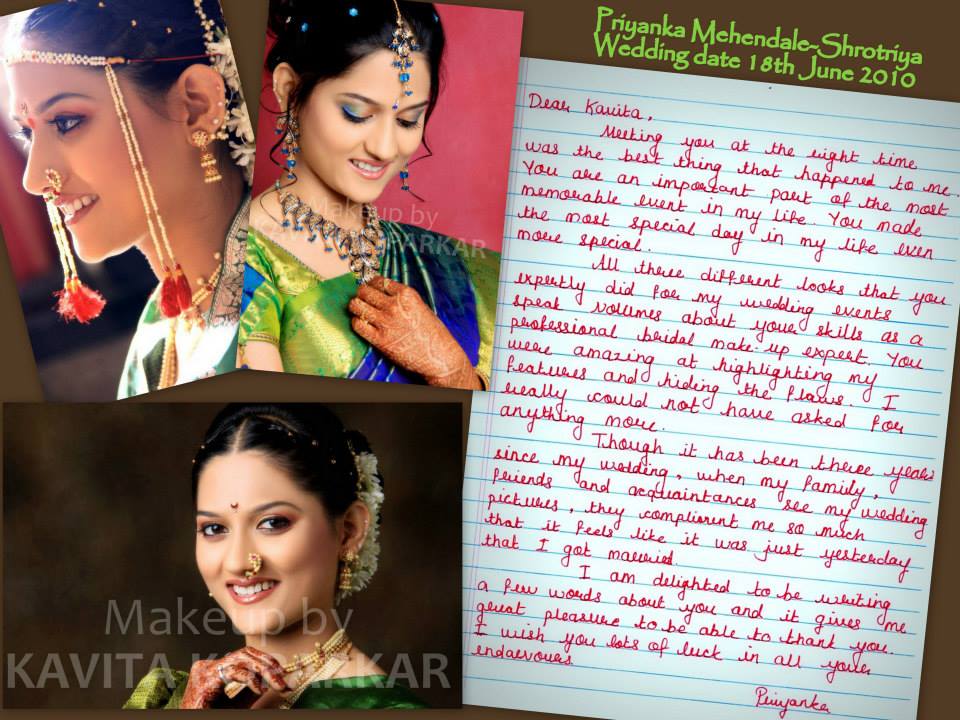 Priyanka Mehendale-Shrotriya
Wedding date 18th June 2010
Dear Kavita,
Meeting you at the right time
was the best thing that happened to me.
You are an important part of the most
memorable event in my life. You made
the most special day in my life even
more special.
All three different looks that you
expertly did for my wedding events
speak volumes about your skills as a
professional bridal make-up expert. You
were amazing at highlighting my
features and hiding the flaws. I
really could not have asked for
anything more.
Though it has been three years
since my wedding, when my family,
friends and acquaintances see my wedding
pictures, they compliment me so much
that it feels like it was just yesterday
that I got married.
I am delighted to be writing
a few words about you and it gives me
great pleasure to be able to thank you.
I wish you lots of luck in all your
endeavours
Priyanka
Makeup by
Makeup by
KAVITA